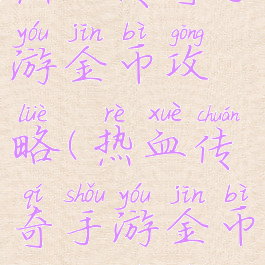 yóu jīn bì gōng
游金币攻
lüè rè xuè chuán
略(热血传
qí shǒu yóu jīn bì
奇手游金币